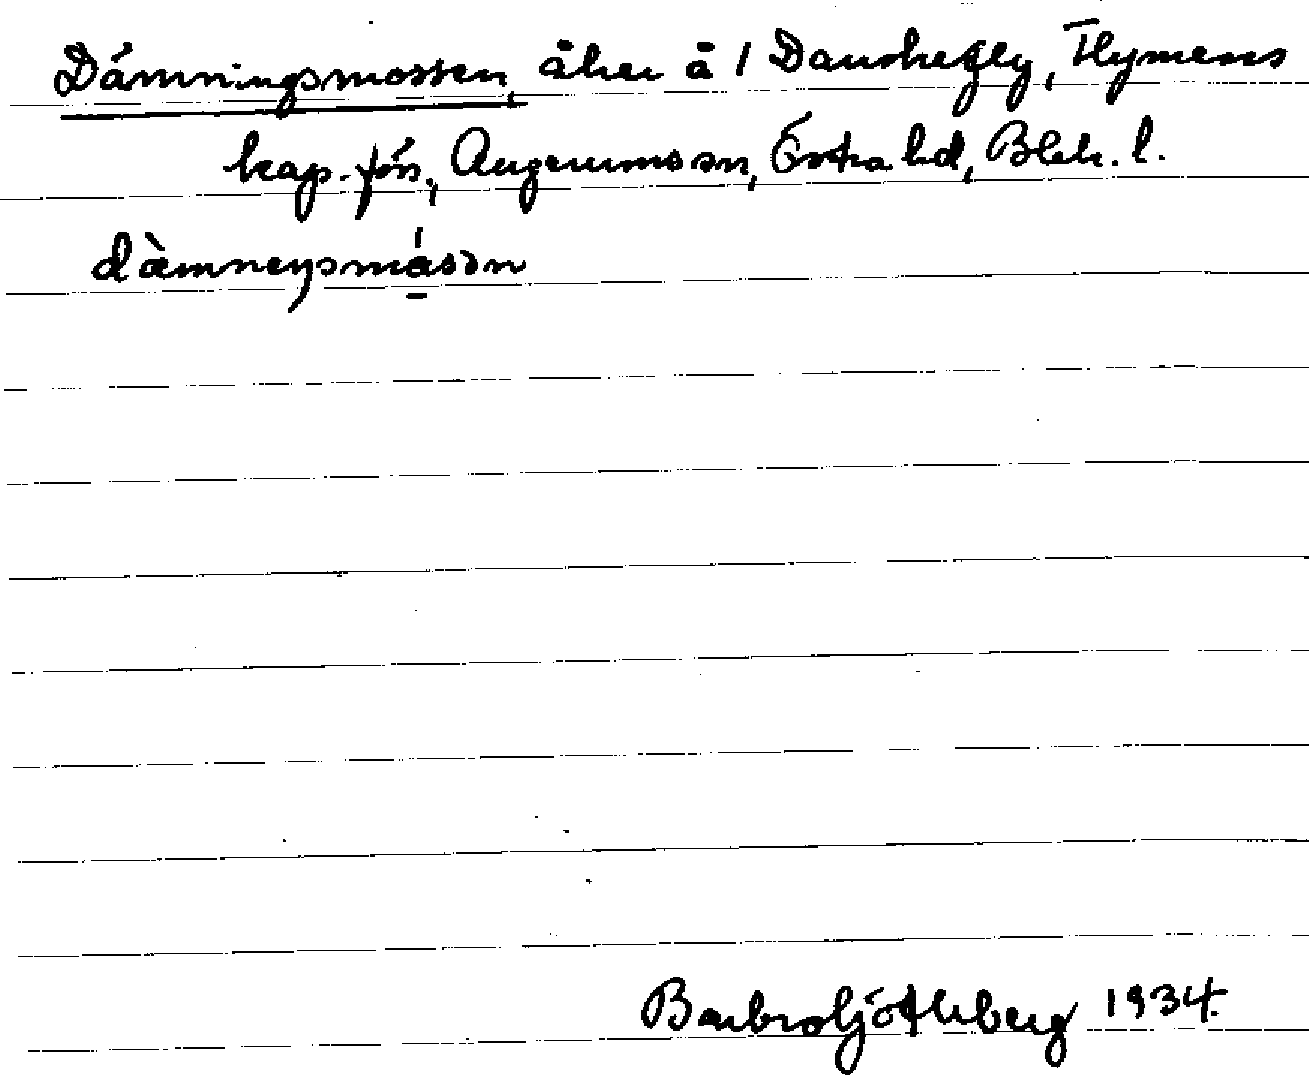 Dämningsmossen, åker å 1 Danskefly, Flymens
kap. förs., Augerums sn, Östra hd, Blek. l.
dàmneŋsmåsən
Barbro Söderberg 1934.